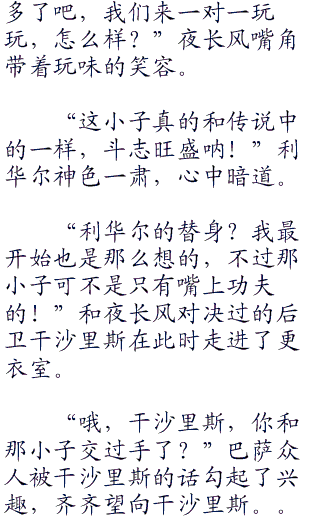 多了吧，我们来一对一玩
玩，怎么样？”夜长风嘴角
带着玩味的笑容。
“这小子真的和传说中
的一样，斗志旺盛呐！”利
华尔神色一肃，心中暗道。
“利华尔的替身？我最
开始也是那么想的，不过那
小子可不是只有嘴上功夫
的！”和夜长风对决过的后
卫干沙里斯在此时走进了更
衣室。
“哦，干沙里斯，你和
那小子交过手了？”巴萨众
人被干沙里斯的话勾起了兴
趣，齐齐望向干沙里斯。。